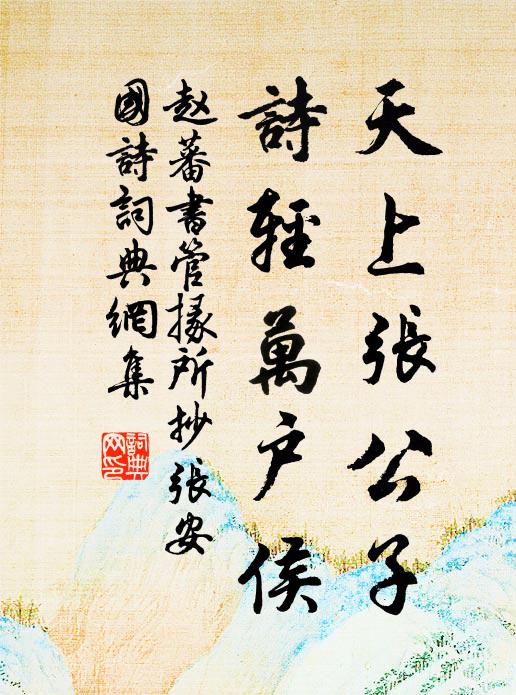 天上張公子
詩輕萬户侯
赵蕃書管掾所抄張安
國詩詞典網集
詞典
网印